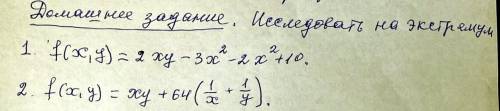 Домашнее задание. Исследовать на экстремум
1. f(x,y) = 2xy - 3x² - 2x² + 10.
2. f(x,y) = xy + 64(1/x + 1/y).